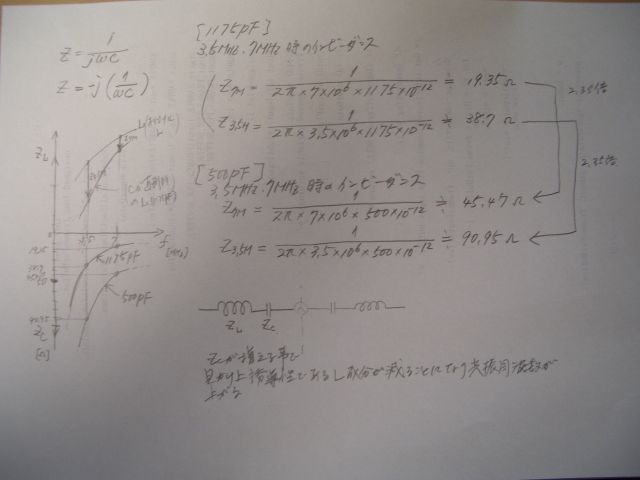 [1175pF]
3.5MHz.7MHz 時のインピーダンス
Z = 1/jωC
Z = -j(1/ωC)
Z7M = 1/2π×7×10^6×1175×10^-12 ≒ 19.35Ω
Z3.5M = 1/2π×3.5×10^6×1175×10^-12 ≒ 38.7Ω
2.35倍
2.35倍
[500pF]
3.5MHz.7MHz 時のインピーダンス
Z7M = 1/2π×7×10^6×500×10^-12 ≒ 45.47Ω
Z3.5M = 1/2π×3.5×10^6×500×10^-12 ≒ 90.95Ω
ZL
0
3.5
7
f
[MHz]
1175pF
500pF
ZC
[Ω]
ZL ZC
ZCが増える事で
見かけ上誘導性であるL成分が減ることになり共振周波数が
上がる